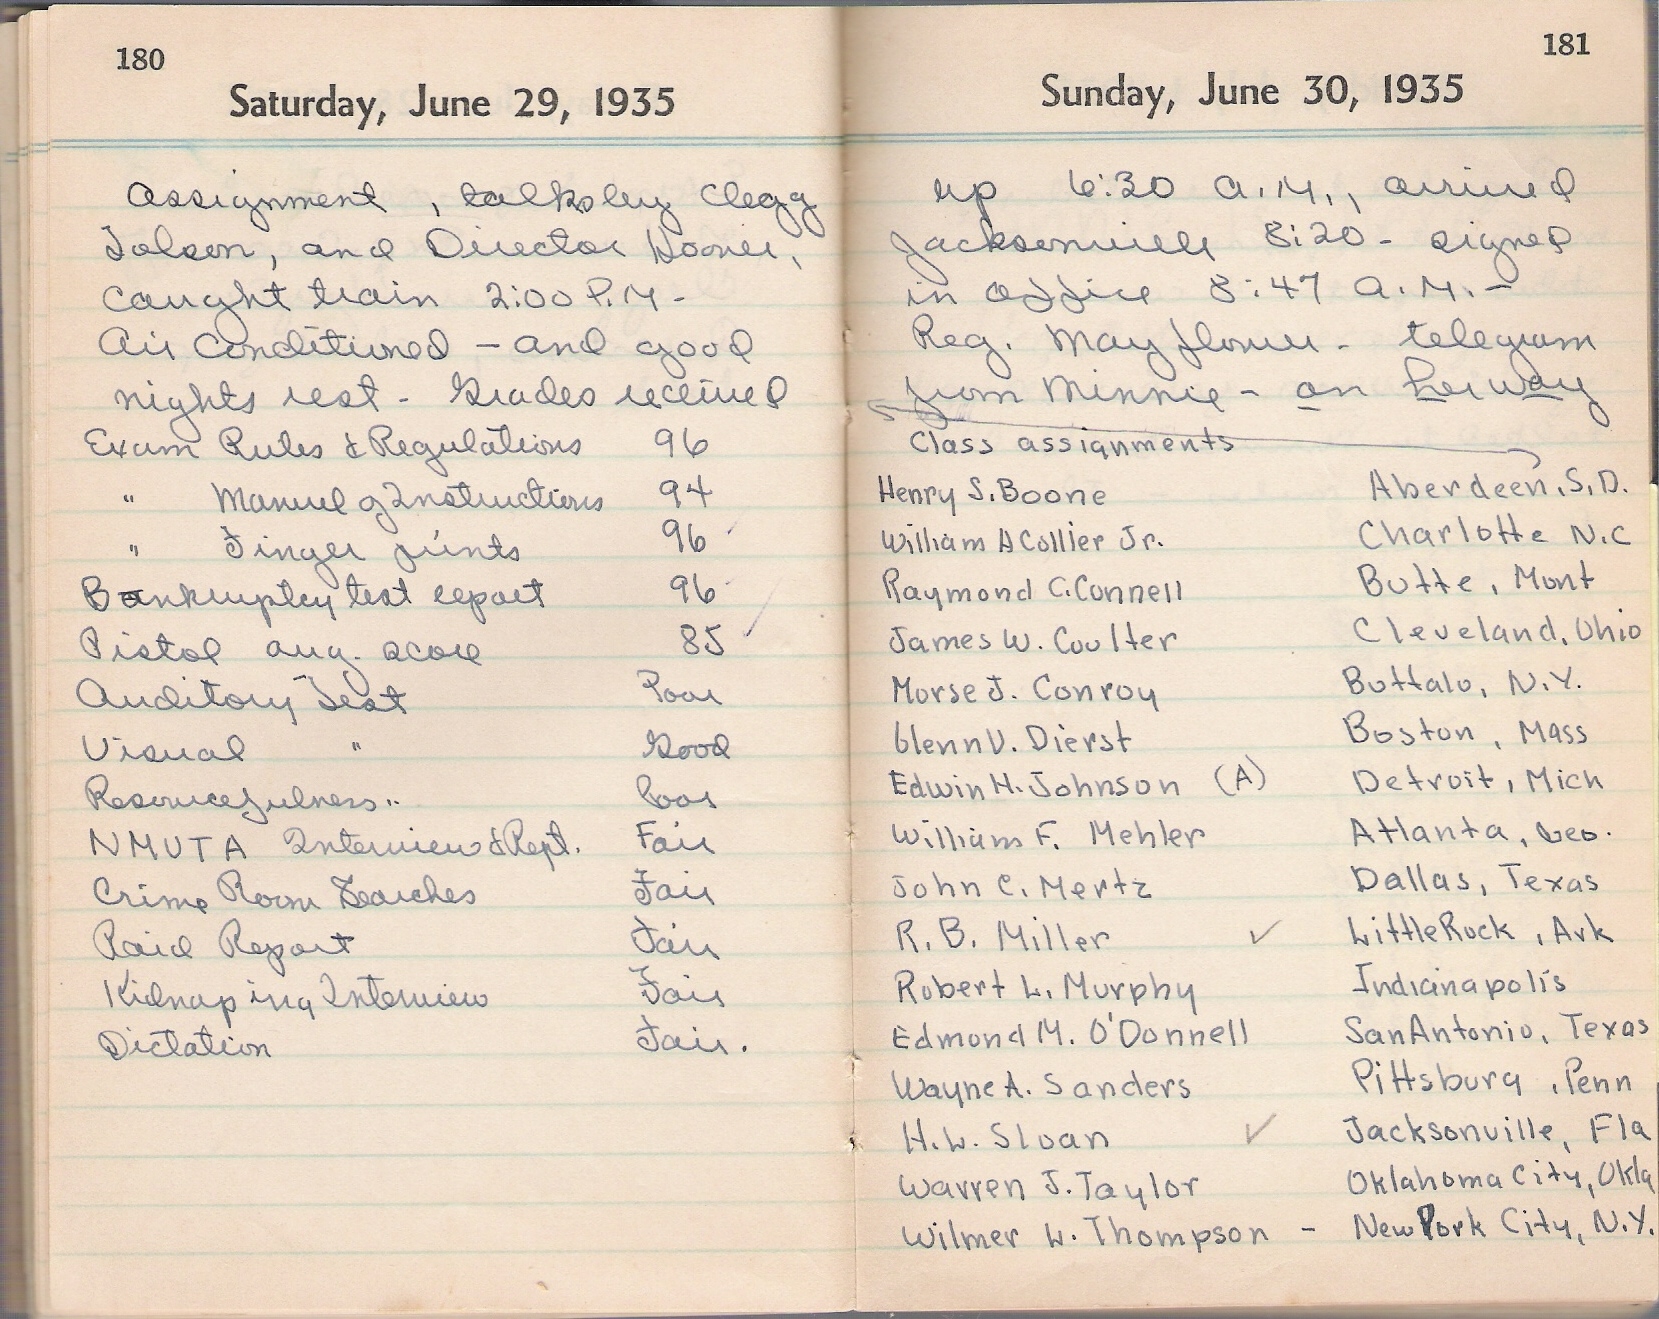 180
Saturday, June 29, 1935
Assignment, talks by Clegg
Tolson, and Director Hoover,
caught train 2:00 P.M -
Air Conditioned - and good
nights rest - Grades received
Exam Rules & Regulations 96
" Manuel of Instructions 94
" Finger prints 96
Bankruptcy test report 96
Pistol avg. score 85
Auditory Test Poor
Visual " Good
Resourcefulness " Poor
NMUTA Interview & Rept. Fair
Crime Room Searches Fair
Raid Report Fair
Kidnaping Interview Fair
Dictation Fair.
181
Sunday, June 30, 1935
up 6:30 A.M., arrived
Jacksonville 8:20 - signed
in office 8:47 A.M. -
Reg. Mayflower - telegram
from Minnie - on her way
Class assignments
Henry S. Boone Aberdeen, S.D.
William A Collier Jr. Charlotte N.C
Raymond C. Connell Butte, Mont
James W. Coulter Cleveland, Ohio
Morse J. Conroy Buffalo, N.Y.
Glenn V. Dierst Boston, Mass
Edwin H. Johnson (A) Detroit, Mich
William F. Mehler Atlanta, Geo.
John C. Mertz Dallas, Texas
R. B. Miller ✓ Little Rock, Ark
Robert L. Murphy Indianapolis
Edmond M. O'Donnell San Antonio, Texas
Wayne A. Sanders Pittsburg, Penn
H. W. Sloan ✓ Jacksonville, Fla
Warren J. Taylor Oklahoma City, Okla
Wilmer W. Thompson - New York City, N.Y.